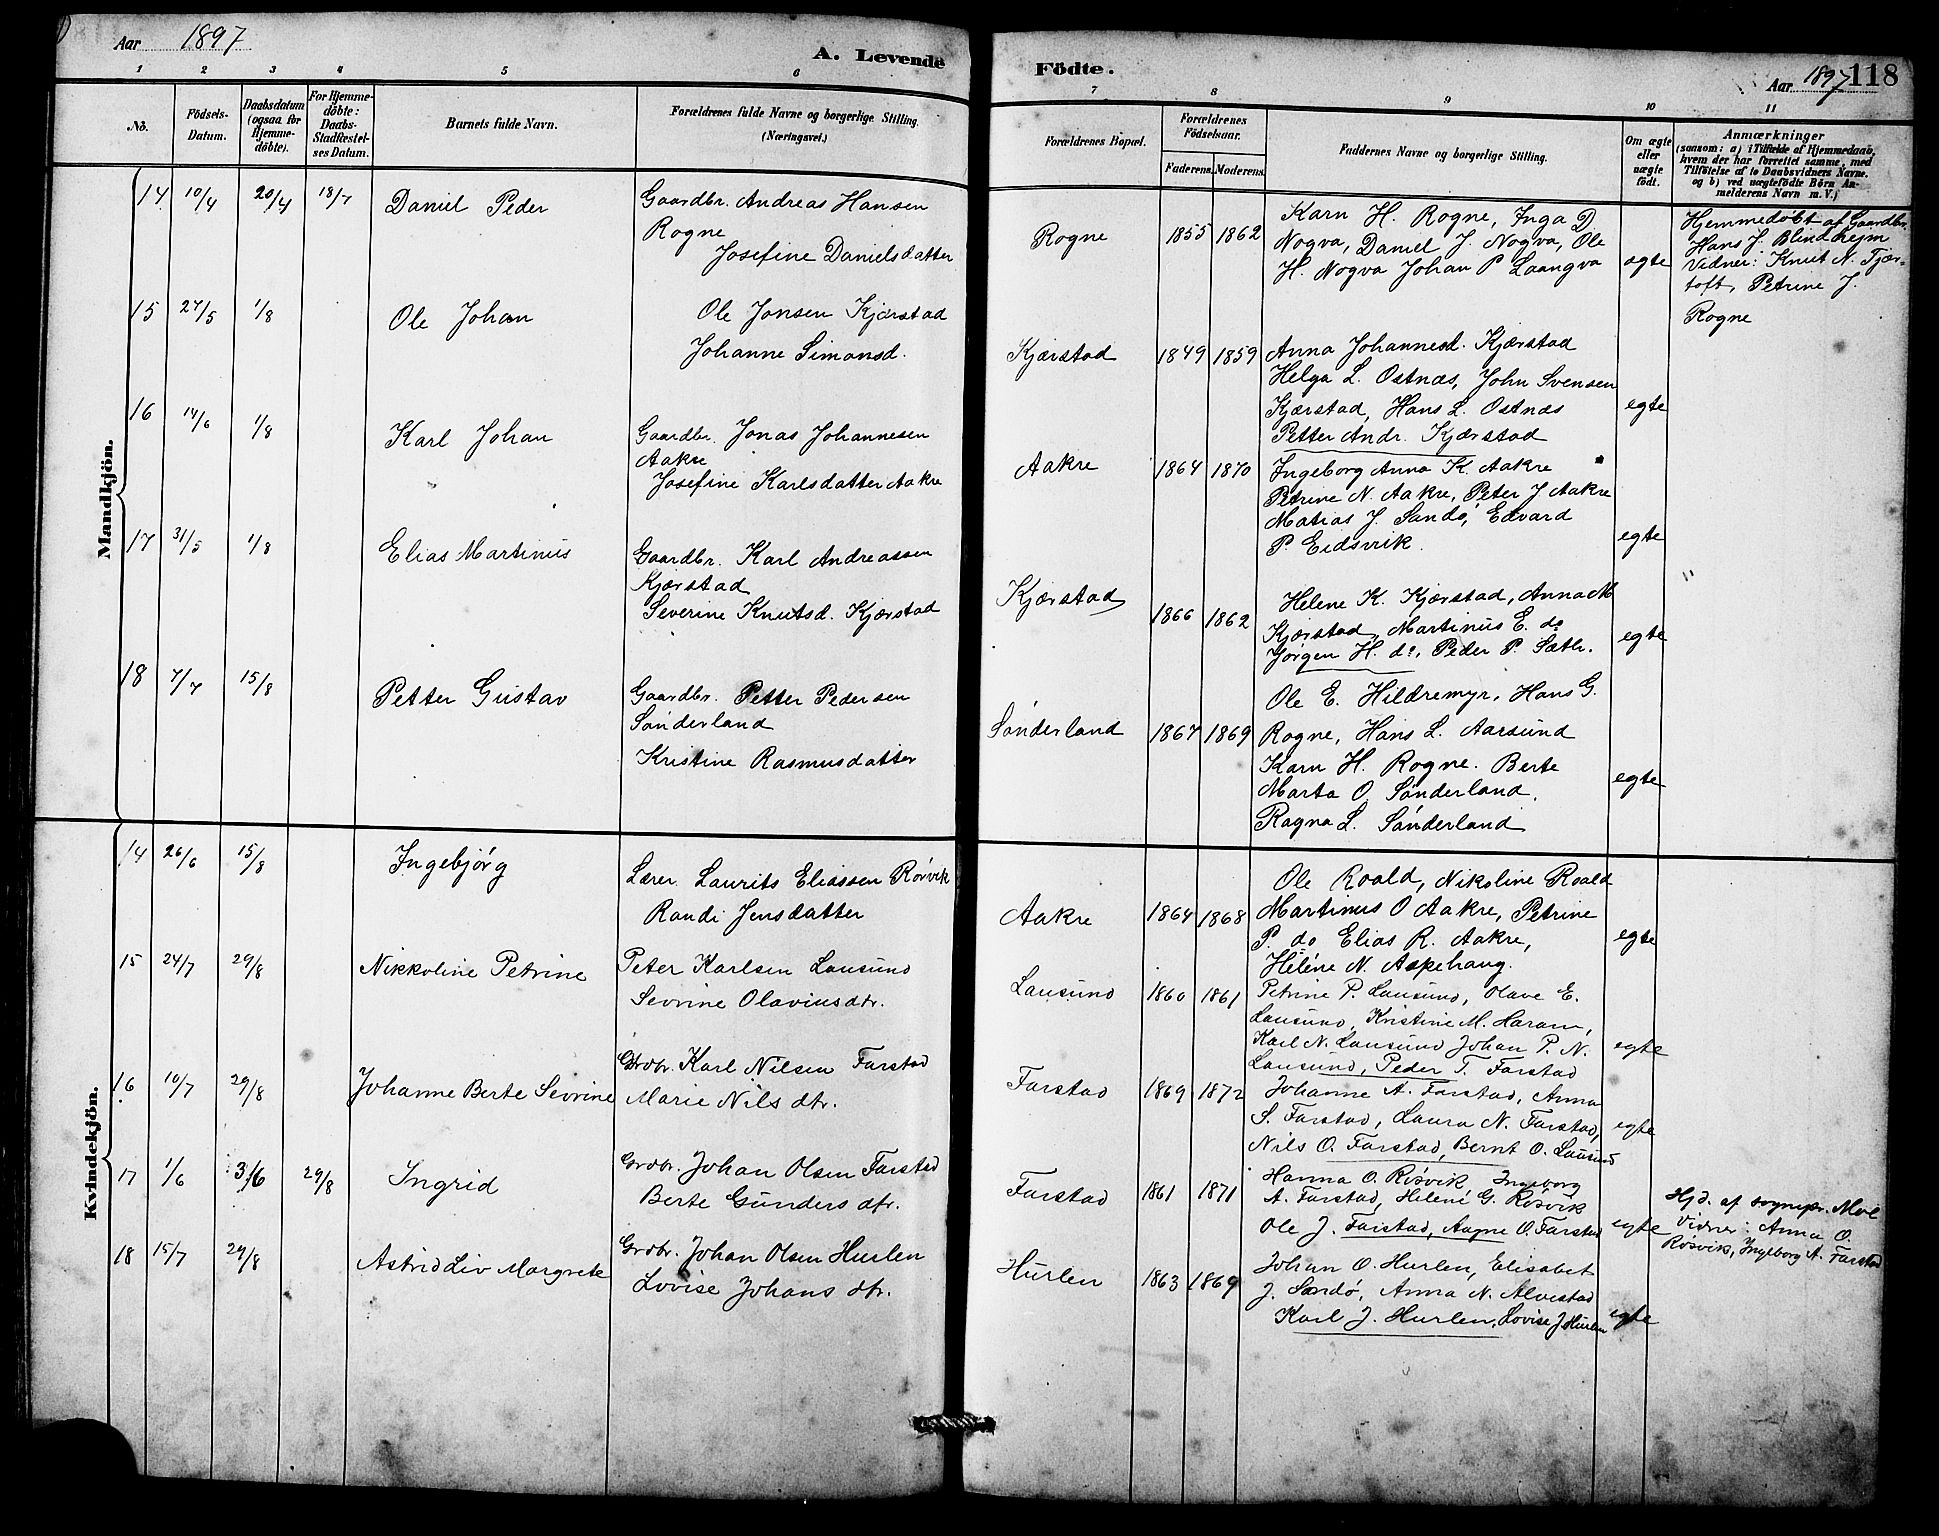 Aar 1897
A. Levende
1 2 3 4 5 6
No.
Födsets-Datum.
Daabsdatum (ogsaa for Hjemmedöbte).
For Hjemmedöbte: Daabs-Stadfæstelses Datum.
Barnets fulde Navn.
Forældrenes fulde Navne og borgerlige Stilling.
(Næringsvei.)
Mandkjön.
14 10/4 20/4 18/7 Daniel Peder Gaardbr. Andreas Hansen
Rogne
Josefine Danielsdatter
15 27/5 1/8 Ole Johan Ole Jonsen Kjærstad
Johanne Simonsd.
16 14/6 1/8 Karl Johan Gaardbr. Jonas Johannesen
Aakre
Josefine Karlsdatter Aakre
17 31/5 1/8 Elias Martinus Gaardbr. Karl Andreassen
Kjærstad
Severine Knutsd. Kjærstad
18 7/7 15/8 Petter Gustav Gaardbr. Petter Pedersen
Sønderland
Kristine Rasmusdatter
Kvindekjön.
14 26/6 15/8 Ingebjørg Lærer Laurits Eliassen Rørvik
Randi Jensdatter
15 24/7 29/8 Nikkoline Petrine Peter Karlsen Lausund
Sevrine Olaviusdtr.
16 10/7 29/8 Johanne Berte Sevrine Grdbr. Karl Nilsen Farstad
Marie Nils dtr.
17 1/6 3/6 29/8 Ingrid Grdbr. Johan Olsen Farstad
Berte Gunders dtr.
18 15/7 29/8 Astrid Liv Margrete Grdbr. Johan Olsen Hurlen
Lovise Johans dtr.
Födte.
Aar 1897 118
7 8 9 10 11
Forældrenes Bopæl.
Forældrenes Födselsaar.
Faderens. Moderens.
Faddernes Navne og borgerlige Stilling.
Om ægte eller uægte födt.
Anmærkninger
(saasom: a) i Tilfælde af Hjemmedaab,
hvem der har forrettet samme, med
Tilföielse af to Daabsvidners Navne.
og b) ved uægtefödte Börn Anmelderens Navn m. V.)
Rogne 1855 1862 Karn H. Rogne, Inga D
Nogva, Daniel J. Nogva, Ole
H. Nogva Johan P Laangva ægte
Hjemmedøbt af Gaardbr.
Hans J. Blindheim
Vidner: Knut N. Fjær-
toft, Petrine J.
Rogne
Kjærstad 1849 1859 Anna Johannesd. Kjærstad
Helga L. Ostnæs, John Svensen
Kjærstad, Hans L. Ostnæs egte
Petter Andr. Kjærstad
Aakre 1864 1870 Ingeborg Anna K. Aakre
Petrine N. Aakre, Peter J Aakre
Matias J. Sandø, Edvard
P. Eidsvik. egte
Kjærstad 1866 1862 Helene K. Kjærstad, Anna M
Kjærstad, Martinus E. do
Jørgen H. do, Peder P. Sæth. egte
Sønderland 1867 1869 Ole E. Hildremyr, Hans G.
Rogne, Hans L. Aarsund
Karn H. Rogne. Berte
Marta O Sønderland. egte
Ragna L. Sønderland
Aakre 1864 1868 Ole Roald, Nikoline Roald
Martinus O Aakre, Petrine
P. do Elias R. Aakre, egte
Heléne N. Aspehaug.
Lausund 1860 1861 Petrine P. Lausund, Olave E.
Lausund, Kristine M. Haram,
Karl N. Lausund Johan P. N. egte
Lausund, Peder T. Farstad
Farstad 1869 1872 Johanne A. Farstad, Anna
S. Farstad, Laura N. Farstad, egte
Nils O. Farstad, Bernt O. Lausund
Farstad 1861 1871 Hanna O. Røsvik, Ingeborg
A. Farstad, Helené G. Røsvik
Ole J. Farstad, Aagne O. Farstad egte
Hjd. af sognepr. Moe
Vidner: Anna O.
Røsvik, Ingeborg A. Farstad
Hurlen 1863 1869 Johan O. Hurlen, Elisabet
J. Sandø, Anna N. Alvestad
Karl J. Hurlen, Lovise J Hurlen egte